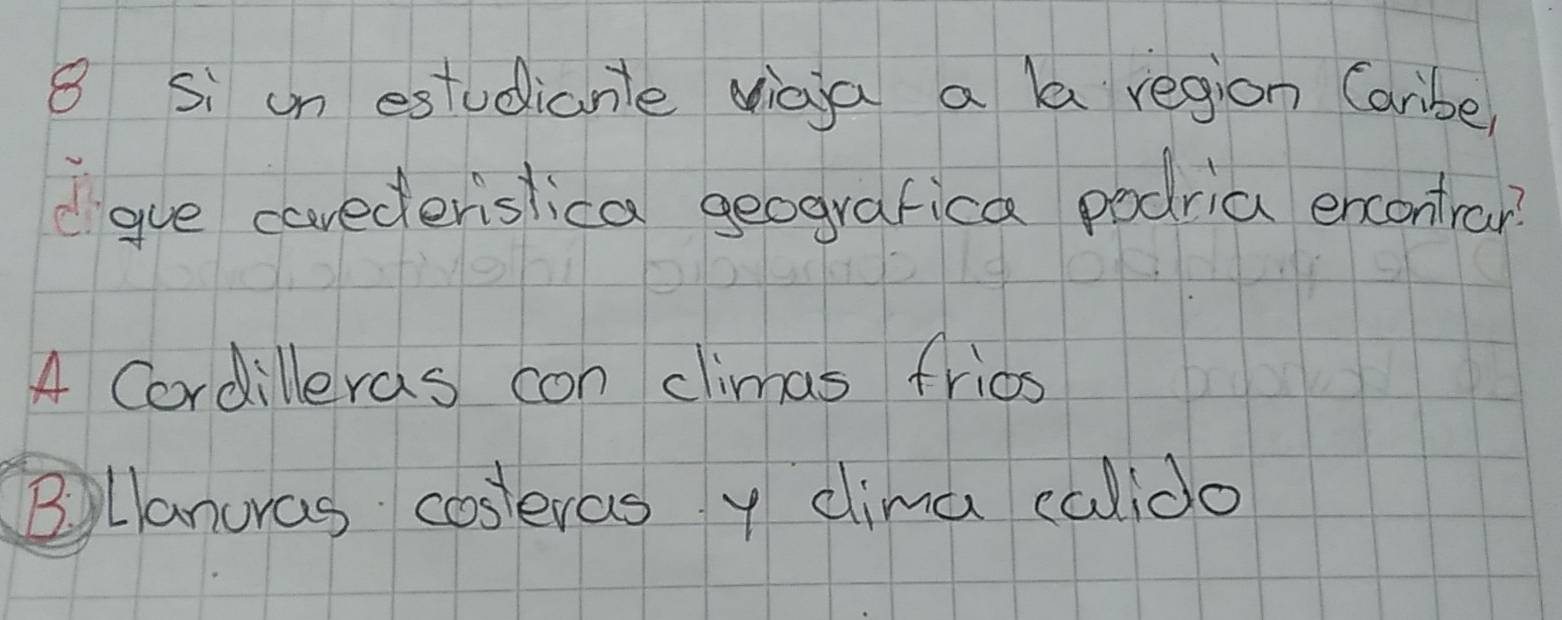 8 Si un estudiante viaja a la region Caribe,
¿que carecteristica geografica podria encontrar?
A Cordilleras con climas frios
B. Llanuras costeras y clima calido